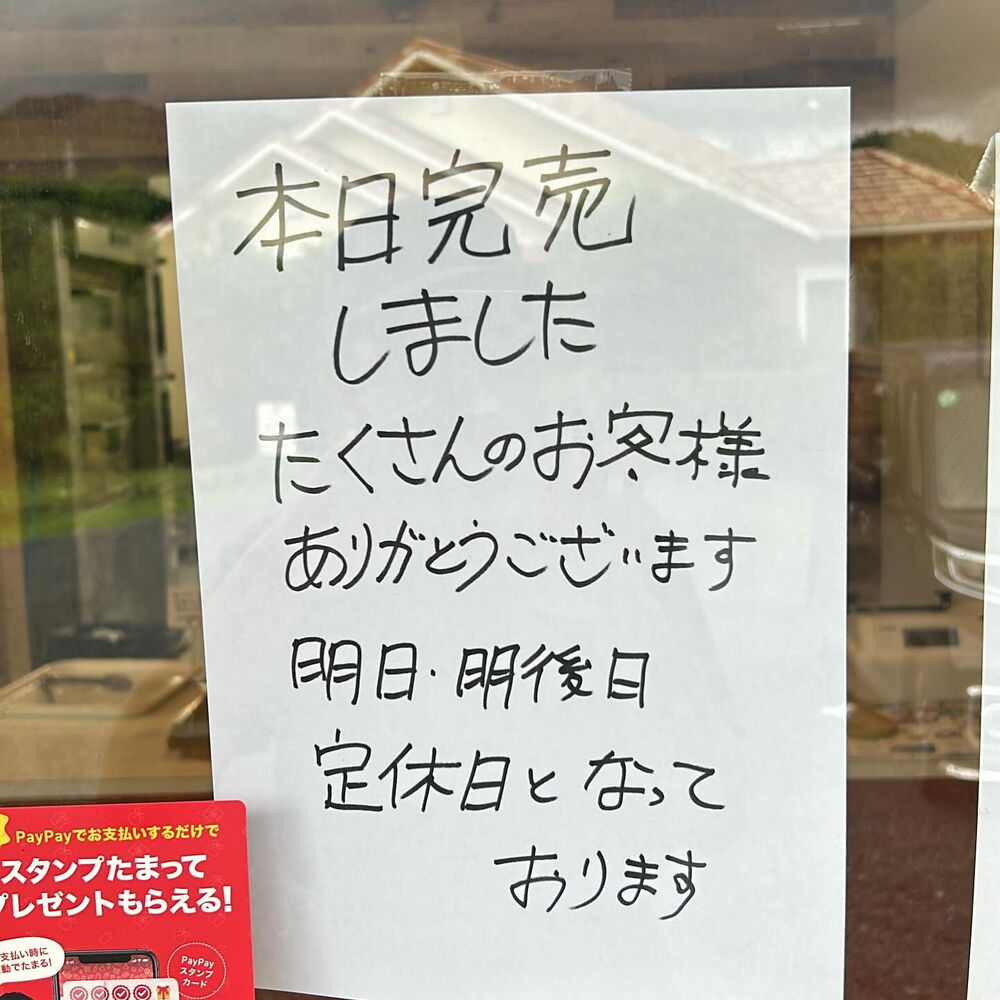 本日完売
しました
たくさんのお客様
ありがとうございます
明日・明後日
定休日となって
おります
PayPayでお支払いするだけで
スタンプたまって
プレゼントもらえる!
支払い時に
動でたまる!
PayPay
スタンプ
カード